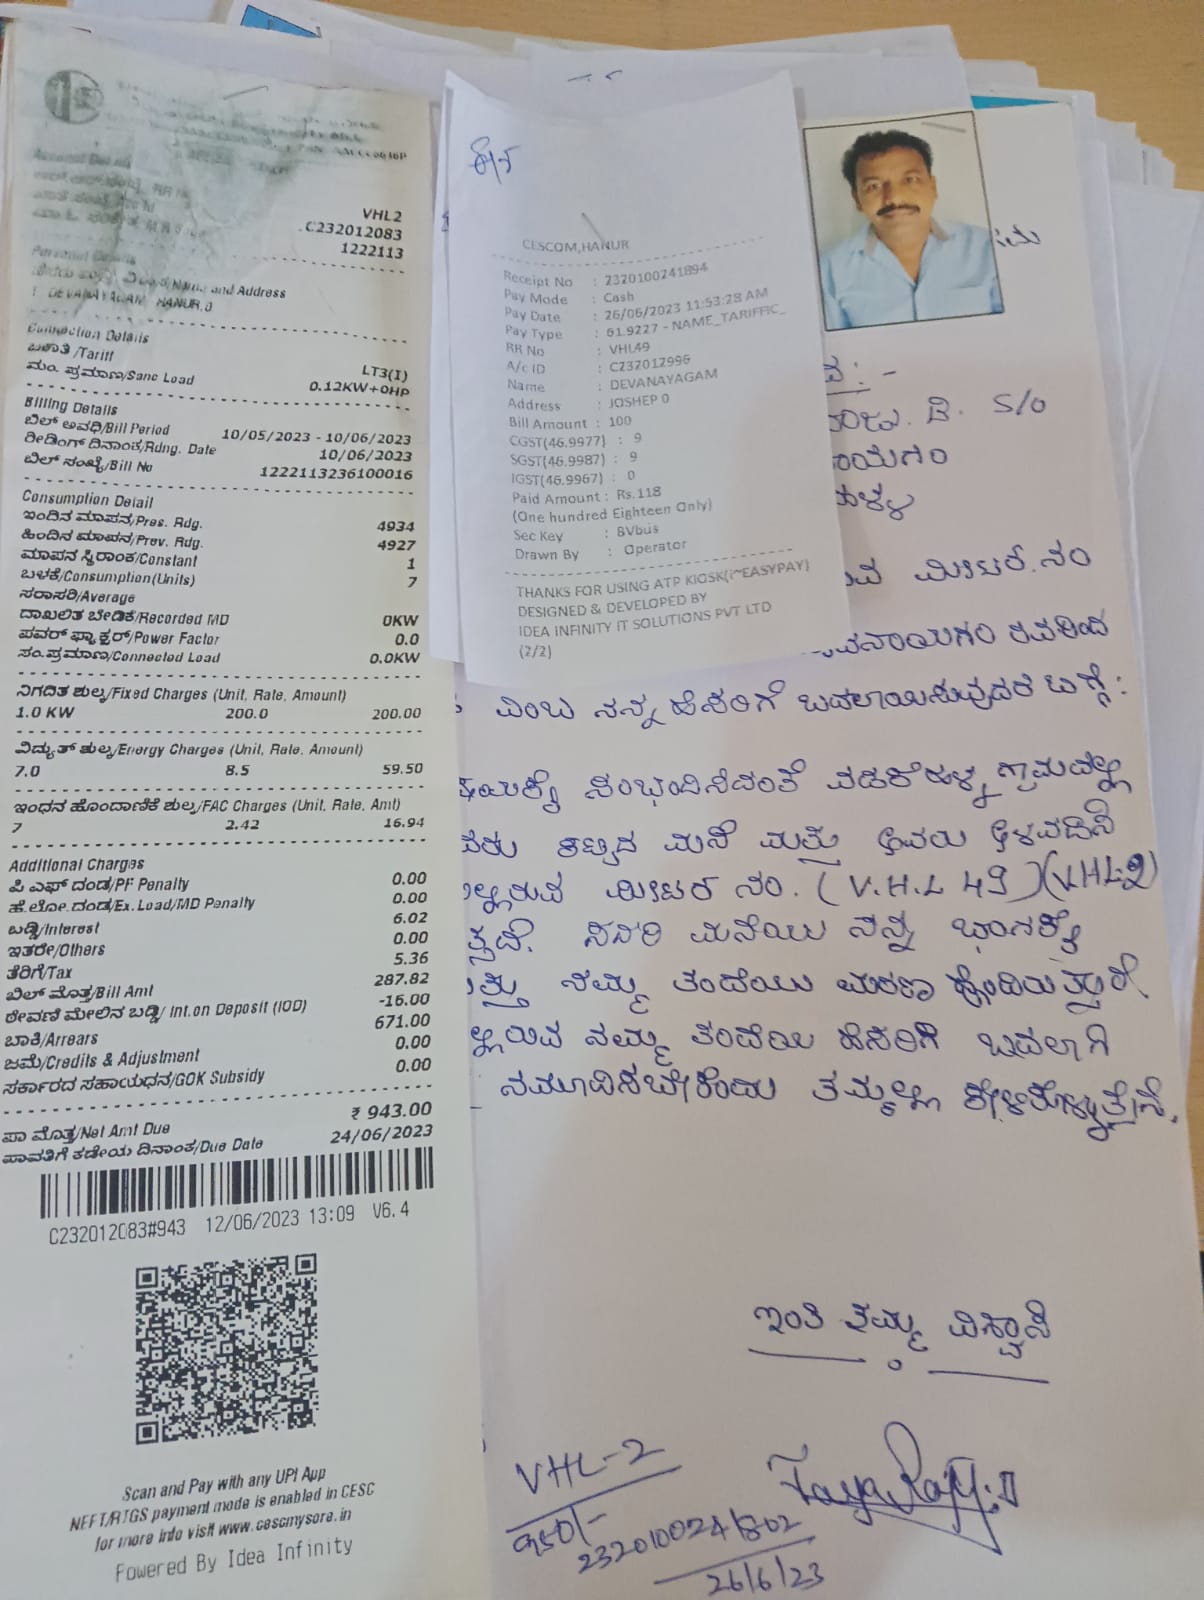 VHL2
C232012083
1222113
/Name and Address
DEVANAYAGAM HANUR,0
Connection Details
ಜಕಾತಿ /Tariff LT3(I)
ಮಂ. ಪ್ರಮಾಣ/Sanc Load 0.12KW+0HP
Billing Details
ಬಿಲ್ ಅವಧಿ/Bill Period 10/05/2023 - 10/06/2023
ರೀಡಿಂಗ್ ದಿನಾಂಕ/Rdng. Date 10/06/2023
ಬಿಲ್ ಸಂಖ್ಯೆ/Bill No 1222113236100016
Consumption Detail
ಇಂದಿನ ಮಾಪನ/Pres. Rdg. 4934
ಹಿಂದಿನ ಮಾಪನ/Prev. Rdg. 4927
ಮಾಪನ ಸ್ಥಿರಾಂಕ/Constant 1
ಬಳಕೆ/Consumption(Units) 7
ಸರಾಸರಿ/Average
ದಾಖಲಿತ ಬೇಡಿಕೆ/Recorded MD 0KW
ಪವರ್ ಫ್ಯಾಕ್ಟರ್/Power Factor 0.0
ಸಂ.ಪ್ರಮಾಣ/Connected Load 0.0KW
ನಿಗದಿತ ಶುಲ್ಕ/Fixed Charges (Unit, Rate, Amount)
1.0 KW 200.0 200.00
ವಿದ್ಯುತ್ ಶುಲ್ಕ/Energy Charges (Unit, Rate, Amount)
7.0 8.5 59.50
ಇಂಧನ ಹೊಂದಾಣಿಕೆ ಶುಲ್ಕ/FAC Charges (Unit, Rate, Amt)
7 2.42 16.94
Additional Charges
ಪಿ ಎಫ್ ದಂಡ/PF Penalty 0.00
ಹೆ.ಲೋ.ದಂಡ/Ex.Load/MD Penalty 0.00
ಬಡ್ಡಿ/Interest 6.02
ಇತರೇ/Others 0.00
ತೆರಿಗೆ/Tax 5.36
ಬಿಲ್ ಮೊತ್ತ/Bill Amt 287.82
ಠೇವಣಿ ಮೇಲಿನ ಬಡ್ಡಿ/ Int.on Deposit (IOD) -16.00
ಬಾಕಿ/Arrears 671.00
ಜಮೆ/Credits & Adjustment 0.00
ಸರ್ಕಾರದ ಸಹಾಯಧನ/GOK Subsidy 0.00
ಪಾ ಮೊತ್ತ/Net Amt Due ₹ 943.00
ಪಾವತಿಗೆ ಕಡೇಯ ದಿನಾಂಕ/Due Date 24/06/2023
C232012083#943 12/06/2023 13:09 V6.4
Scan and Pay with any UPI App
NEFT/RTGS payment mode is enabled in CESC
for more info visit www.cescmysore.in
Powered By Idea Infinity
CESCOM,HANUR
Receipt No : 2320100241894
Pay Mode : Cash
Pay Date : 26/06/2023 11:53:28 AM
Pay Type : 61.9227 - NAME_TARIFFIC_
RR No : VHL49
A/c ID : C232012996
Name : DEVANAYAGAM
Address : JOSHEP 0
Bill Amount : 100
CGST(46.9977) : 9
SGST(46.9987) : 9
IGST(46.9967) : 0
Paid Amount : Rs.118
(One hundred Eighteen Only)
Sec Key : BVbus
Drawn By : Operator
THANKS FOR USING ATP KIOSK(i~EASYPAY)
DESIGNED & DEVELOPED BY
IDEA INFINITY IT SOLUTIONS PVT LTD
(2/2)
ಡಿ. S/o
ಮೀಟರ್.ನಂ
ಎಂಬ ನನ್ನ ಹೆಸರಿಗೆ ಬದಲಾಯಿಸುವುದರ ಬಗ್ಗೆ:
ಸಂಭಂದಿಸಿದಂತೆ ವಡಕೆಹಳ್ಳ ಗ್ರಾಮದಲ್ಲಿ
ಮನೆ ಮತ್ತು
ಮೀಟರ್ ನಂ. (V.H.L 49)(V.H.L2)
ಸದರಿ ಮನೆಯು ನನ್ನ ಭಾಗಕ್ಕೆ
ನಮ್ಮ ತಂದೆಯು ಮರಣ ಹೊಂದಿರುತ್ತಾರೆ.
ನಮ್ಮ ತಂದೆಯ ಹೆಸರಿಗೆ ಬದಲಾಗಿ
ತಮ್ಮಲ್ಲಿ ಕೇಳಿಕೊಳ್ಳುತ್ತೇನೆ.
ಇಂತಿ ತಮ್ಮ ವಿಶ್ವಾಸಿ
VHL-2
2320100241802
26/6/23